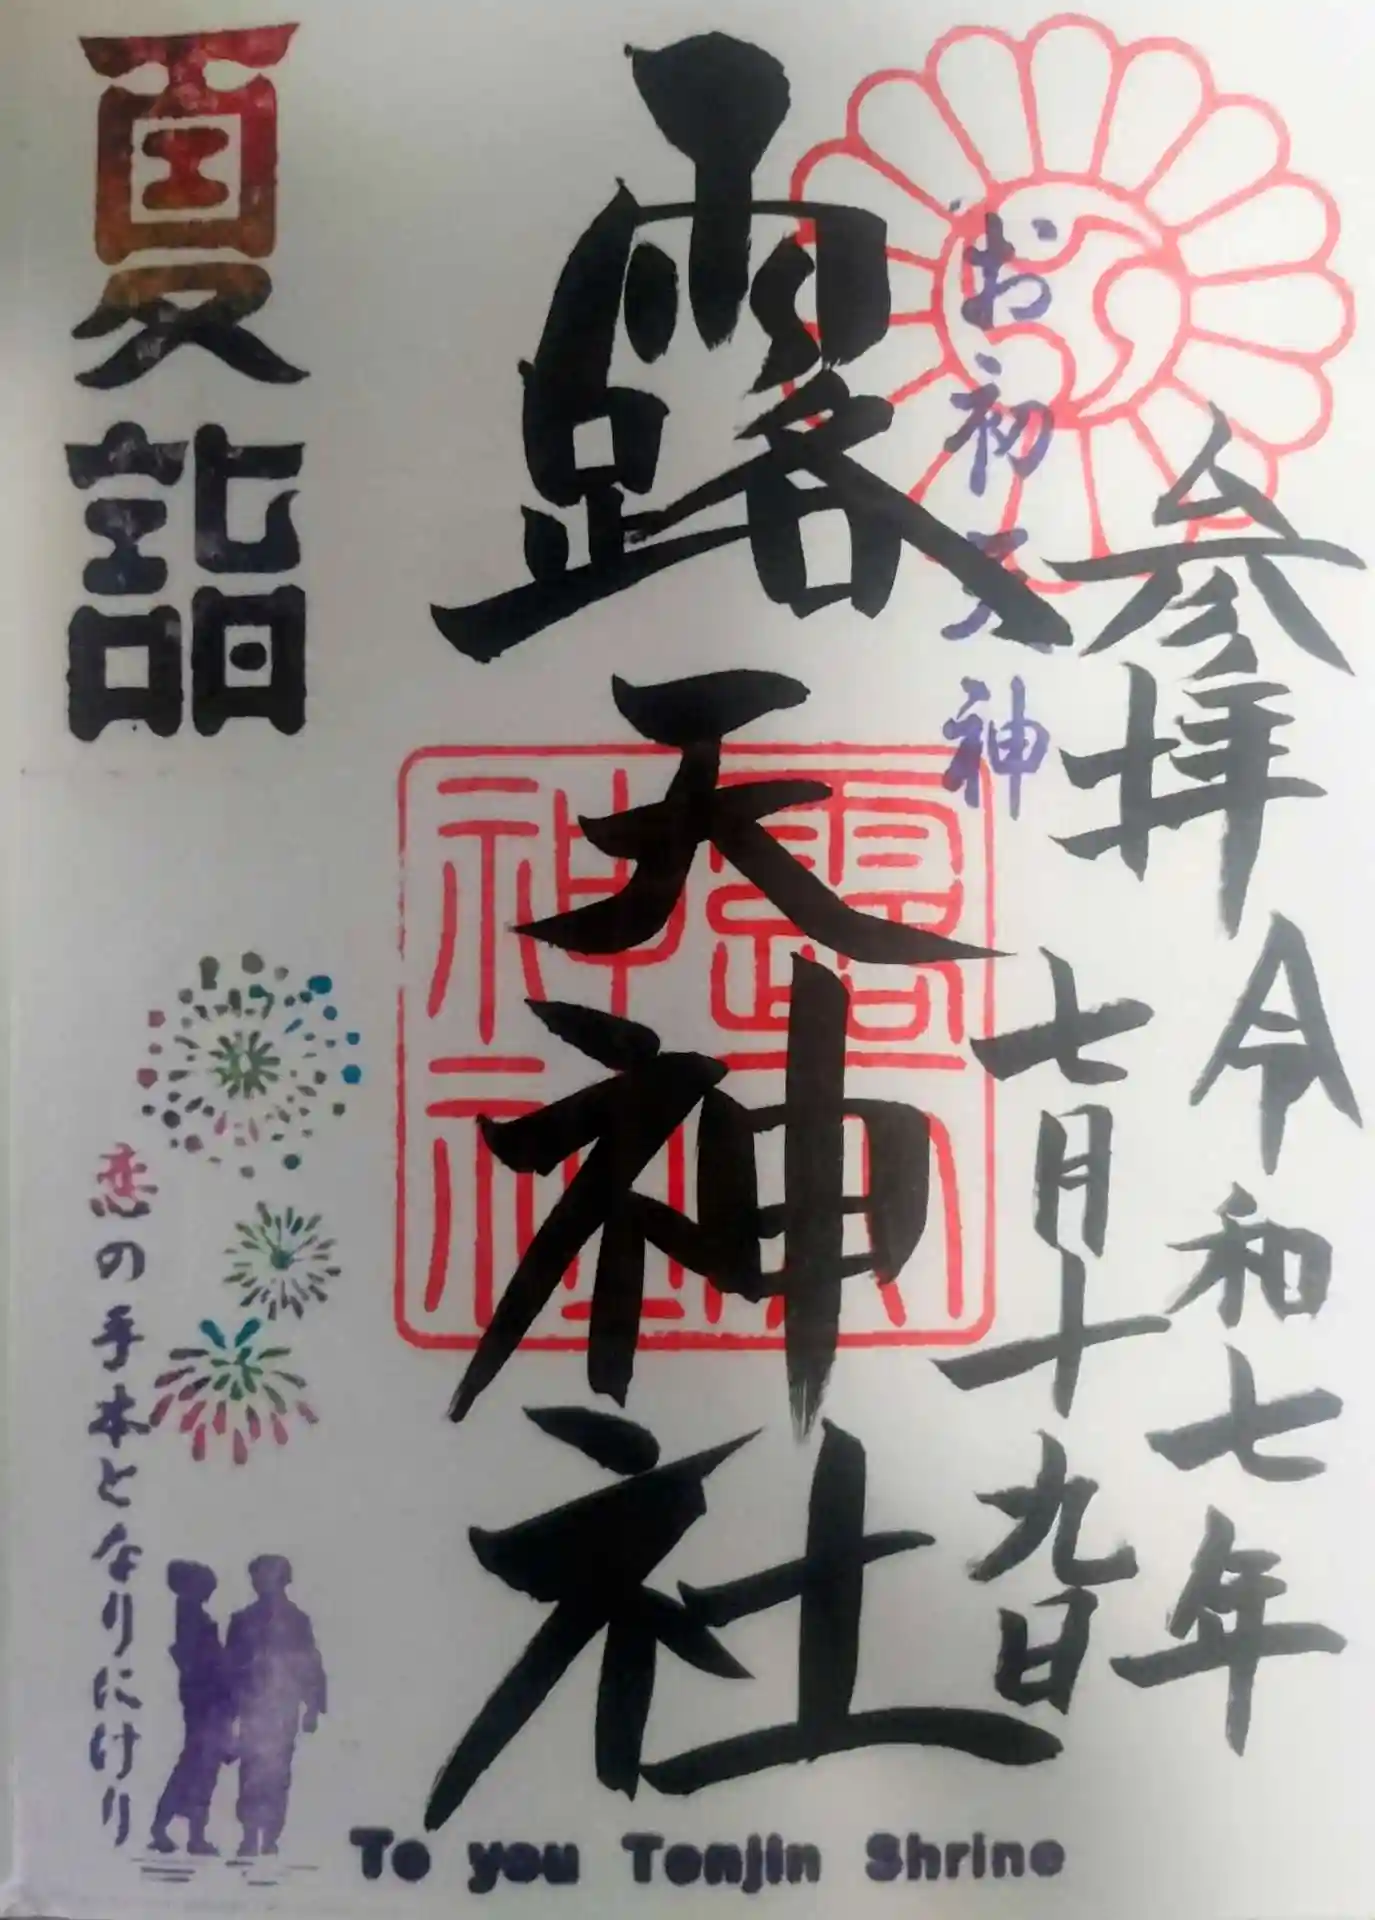 参拝 令和七年
七月十九日
お初天神
露天神社
露天
神社
夏詣
恋の手本となりにけり
To you Tenjin Shrine